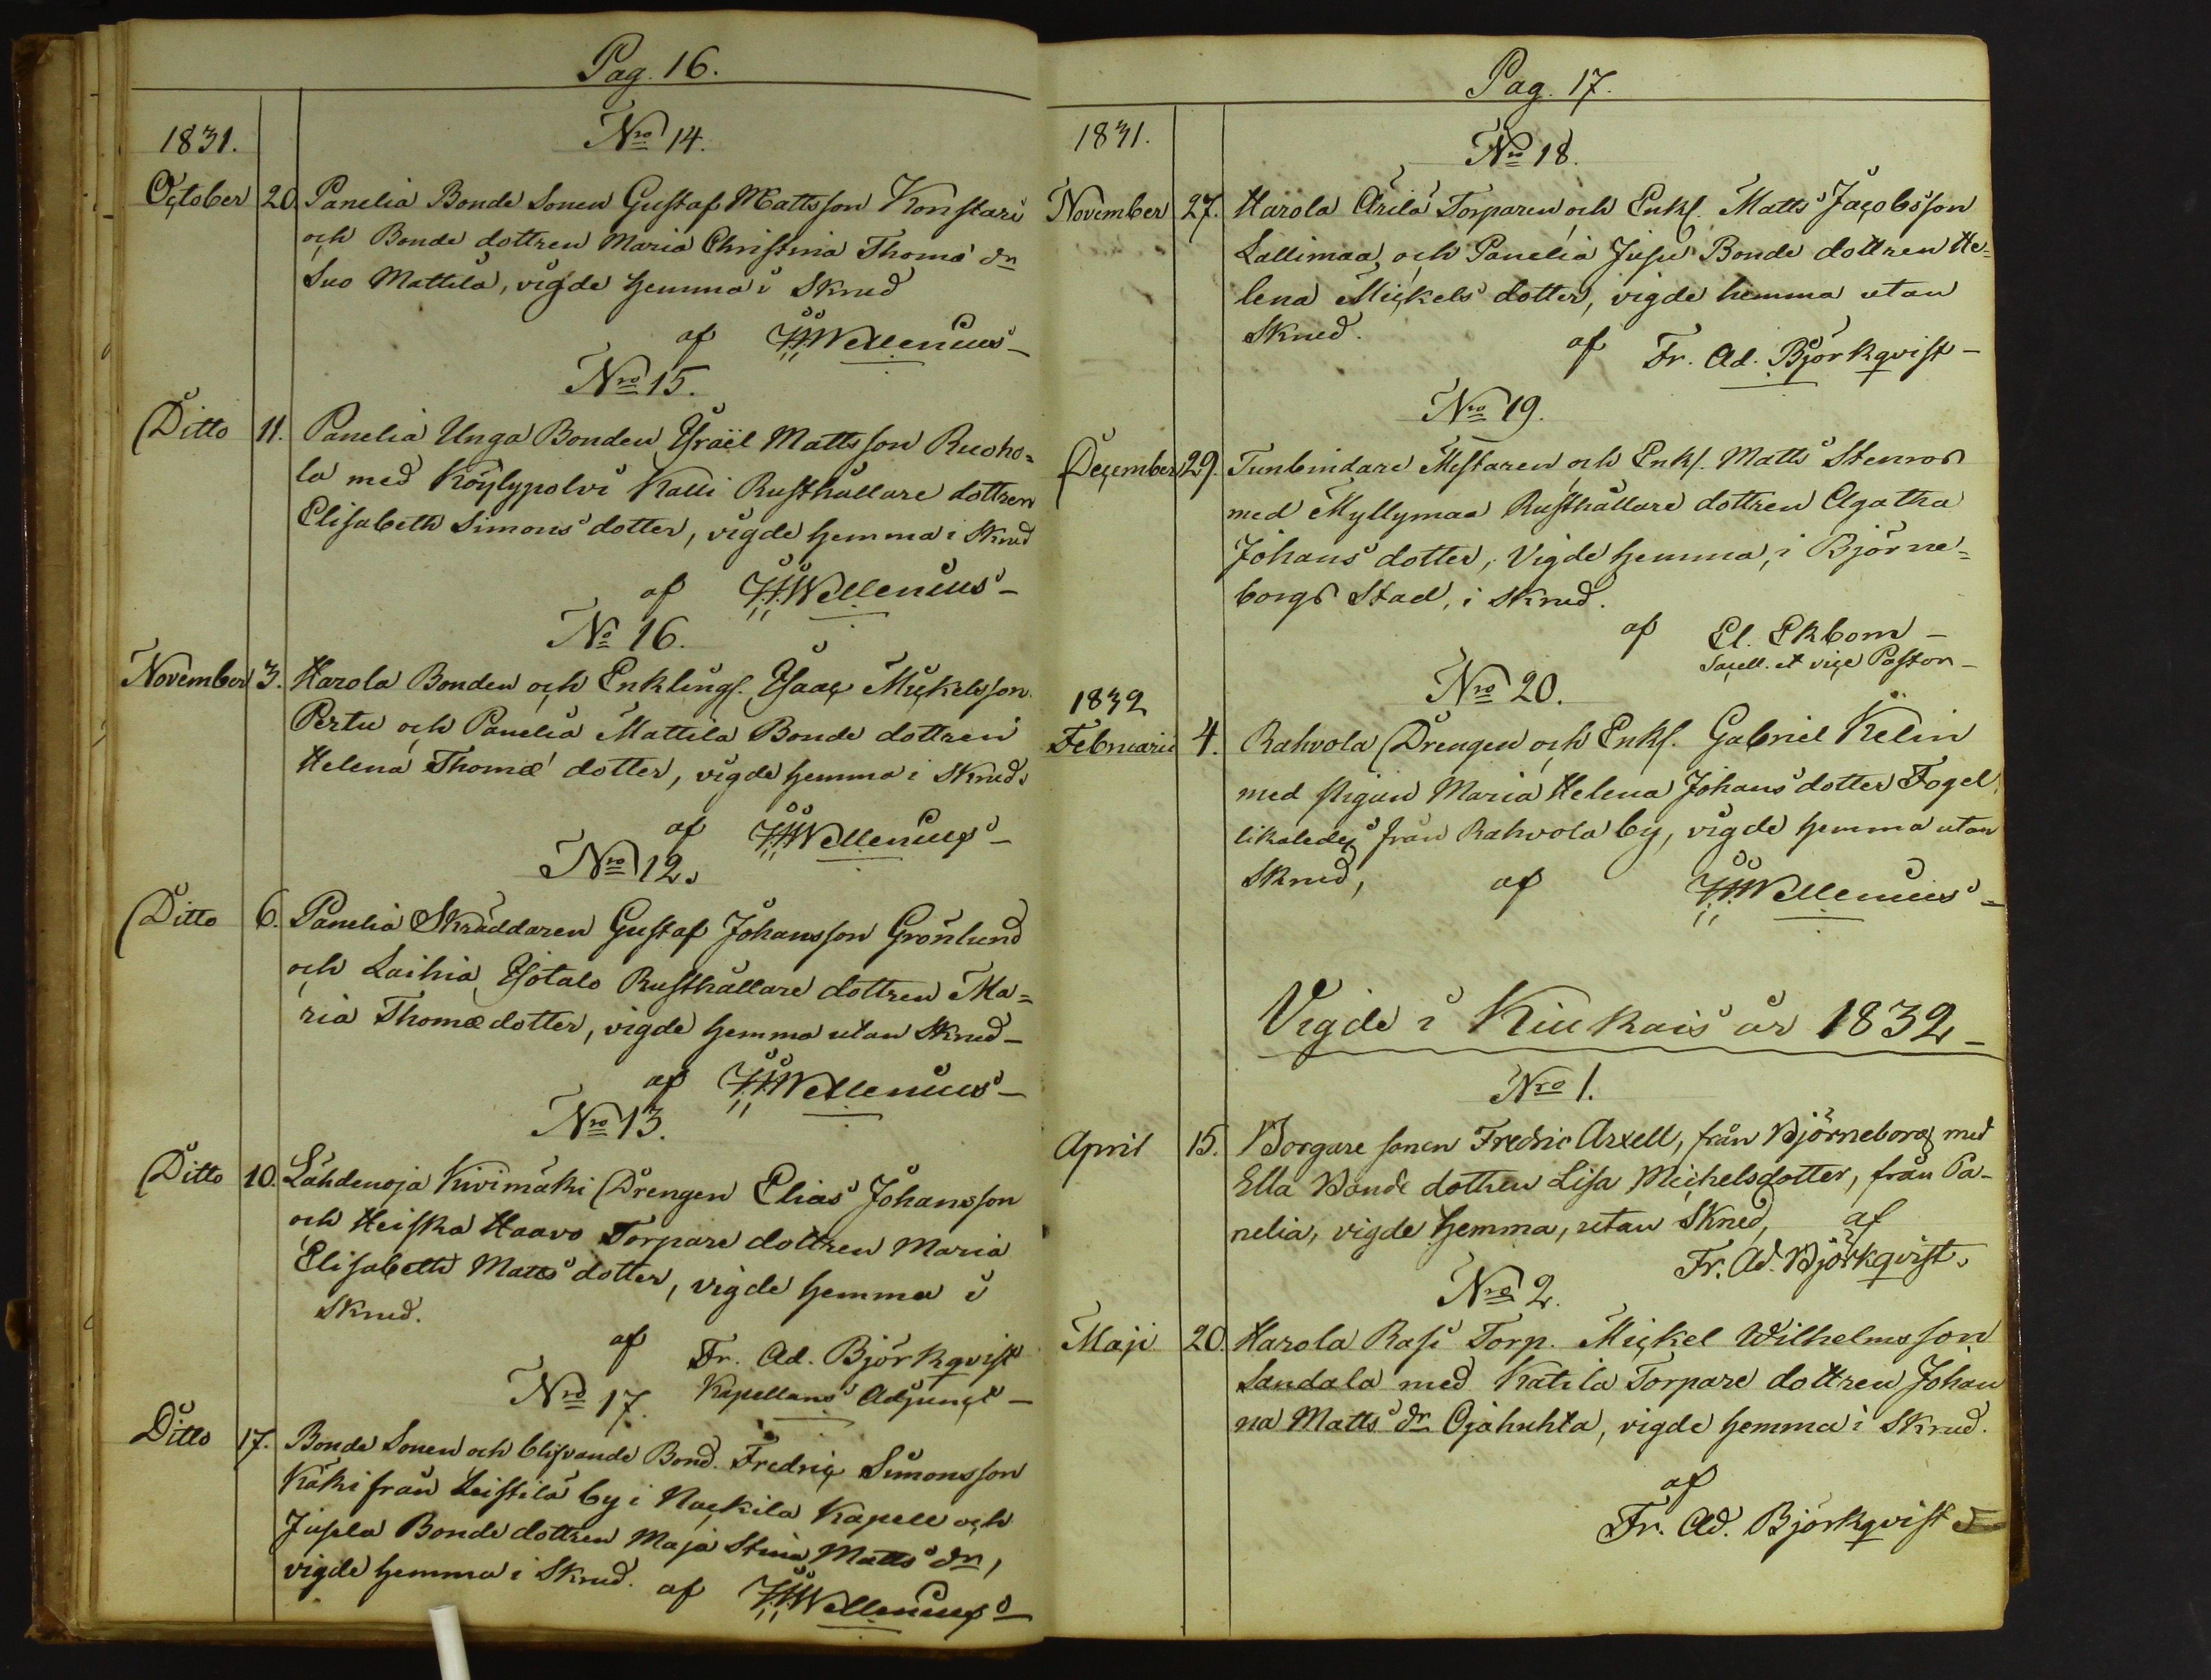 Pag. 16.
1831.
Nro 14.
October 20. Panelia Bonde Sonen Gustaf Mattsson Konstari
och Bonde dottren Maria Christina Thomæ dr
Suo Mattila, vigde hemma i Skrud
af Wellenius
Nro 15.
Ditto 11. Panelia Unga Bonden Israël Mattsson Ruoho-
la med Köylypolvi Kalli Rusthållare dottren
Elisabeth Simons dotter, vigde hemma i Skrud
af Wellenius
No 16.
November 3. Harola Bonden och Enklingn. Isaac Mickelsson
Pertu och Panelia Mattila Bonde dottren
Helena Thomæ dotter, vigde hemma i Skrud.
af Wellenius
Nro 12.
Ditto 6. Panelia Skräddaren Gustaf Johansson Grönlund
och Laihia Isotalo Rusthållare dottren Ma-
ria Thomædotter, vigde hemma utan Skrud
af Wellenius
Nro 13.
Ditto 10. Lähdenoja Kivimäki Drengen Elias Johansson
och Heiska Haavo Torpare dottren Maria
Elisabeth Matts dotter, vigde hemma i
Skrud.
af Fr. Ad. Björkqvist
Kapellans Adjunct
Nro 17.
Ditto 17. Bonde Sonen och blifvande Bond. Fredric Simonsson
Käki från Leistilä by i Nackila Kapell och
Jusela Bonde dottren Maja Stina Matts dr,
vigde hemma i Skrud. af Wellenius
Pag. 17.
1831.
Nro 18.
November 27. Harola Ärilä Torparen och Enkl. Matts Jacobsson
Lallimaa, och Panelia Jusu Bonde dottren He-
lena Mickels dotter, vigde hemma utan
Skrud. af Fr. Ad. Björkqvist
Nro 19.
December 29. Tunbindare Mestaren och Enkl. Matts Stenros
med Myllymaa Rusthållare dottren Agatha
Johans dotter, Vigde hemma, i Björne-
borgs Stad, i Skrud.
af El. Ekbom
Sacell. et vice Pastor
1832
Nro 20.
Februarii 4. Rahvola Drengen och Enkl. Gabriel Kelin
med pigan Maria Helena Johans dotter Fogel
likaledes från Rahvola by, vigde hemma utan
Skrud, af Wellenius
Vigde i Kiukais år 1832
Nro 1.
April 15. Borgare sonen Fredric Arxell, från Björneborg med
Ella Bonde dottren Lisa Michelsdotter, från Pa-
nelia, vigde hemma, utan Skrud, af
Fr. Ad. Björkqvist.
Nro 2.
Maji 20. Harola Rasi Torp. Mickel Wilhelmsson
Sandala med Katila Torpare dottren Johan
na Matts dr Ojahuhta, vigde hemma i Skrud.
af
Fr. Ad. Björkqvist